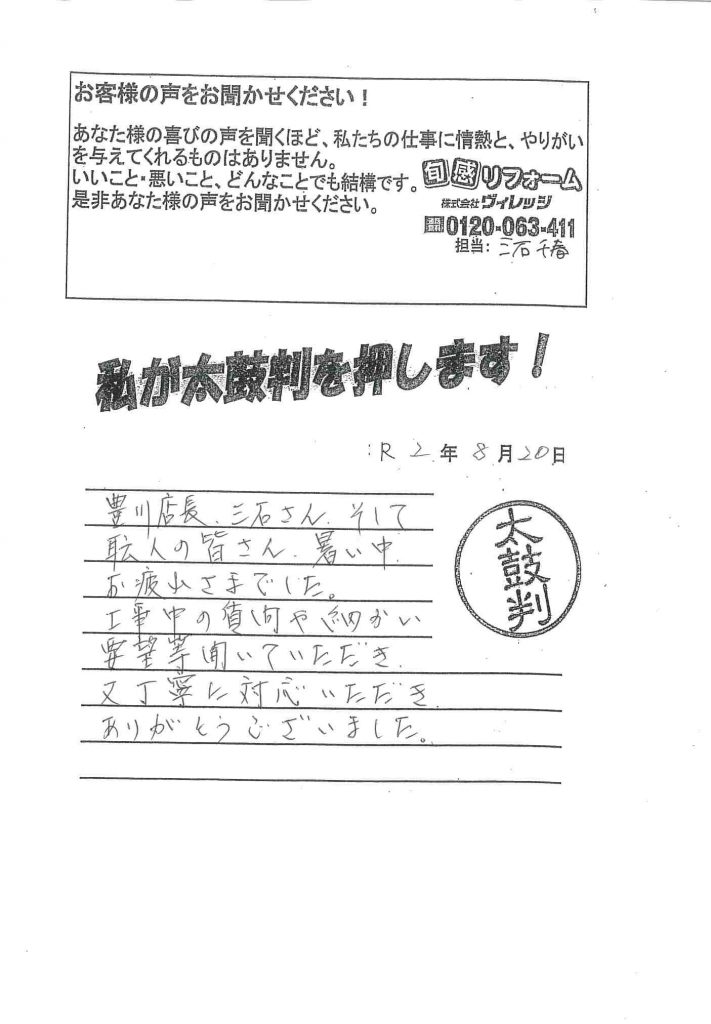 お客様の声をお聞かせください！
あなた様の喜びの声を聞くほど、私たちの仕事に情熱と、やりがい
を与えてくれるものはありません。
いいこと・悪いこと、どんなことでも結構です。
是非あなた様の声をお聞かせください。
旬感リフォーム
株式会社ヴィレッジ
0120-063-411
担当：三石千春
私が太鼓判を押します！
：R2年8月20日
豊川店長、三石さん、そして
職人の皆さん、暑い中、
お疲れさまでした。
工事中の質問や細かい
要望等聞いていただき、
又丁寧に対応いただき、
ありがとうございました。
太鼓判